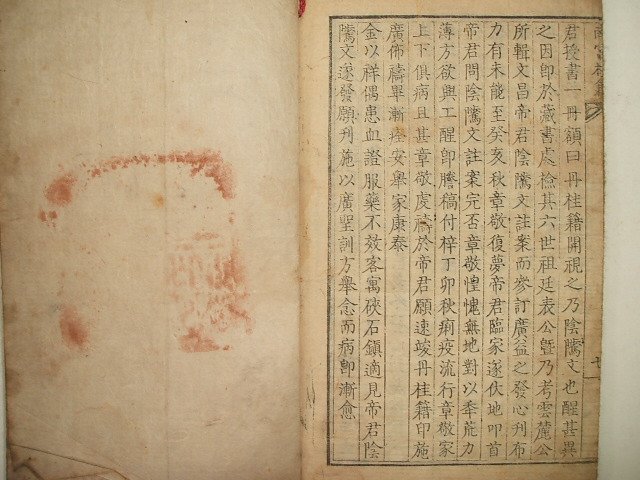 君授書一冊額曰丹桂籍開視之乃陰隲文也醒甚異
之因即於藏書處檢其六世祖廷表公曁乃考雲麓公
所輯文昌帝君陰隲文註案而參訂廣益之發心刋布
力有未能至癸亥秋章敬復夢帝君臨家遂伏地叩首
帝君問陰隲文註案完否章敬惶愧無地對以奉荒力
薄方欲興工醒即謄稿付梓丁卯秋痢疫流行章敬家
上下俱病且甚章敬虔禱於帝君願速竣丹桂籍印施
廣佈禱畢漸痊安舉家康泰
金以祥偶患血證服藥不效客寓硤石鎮適見帝君陰
隲文遂發願刋施以廣聖訓方舉念而病即漸愈